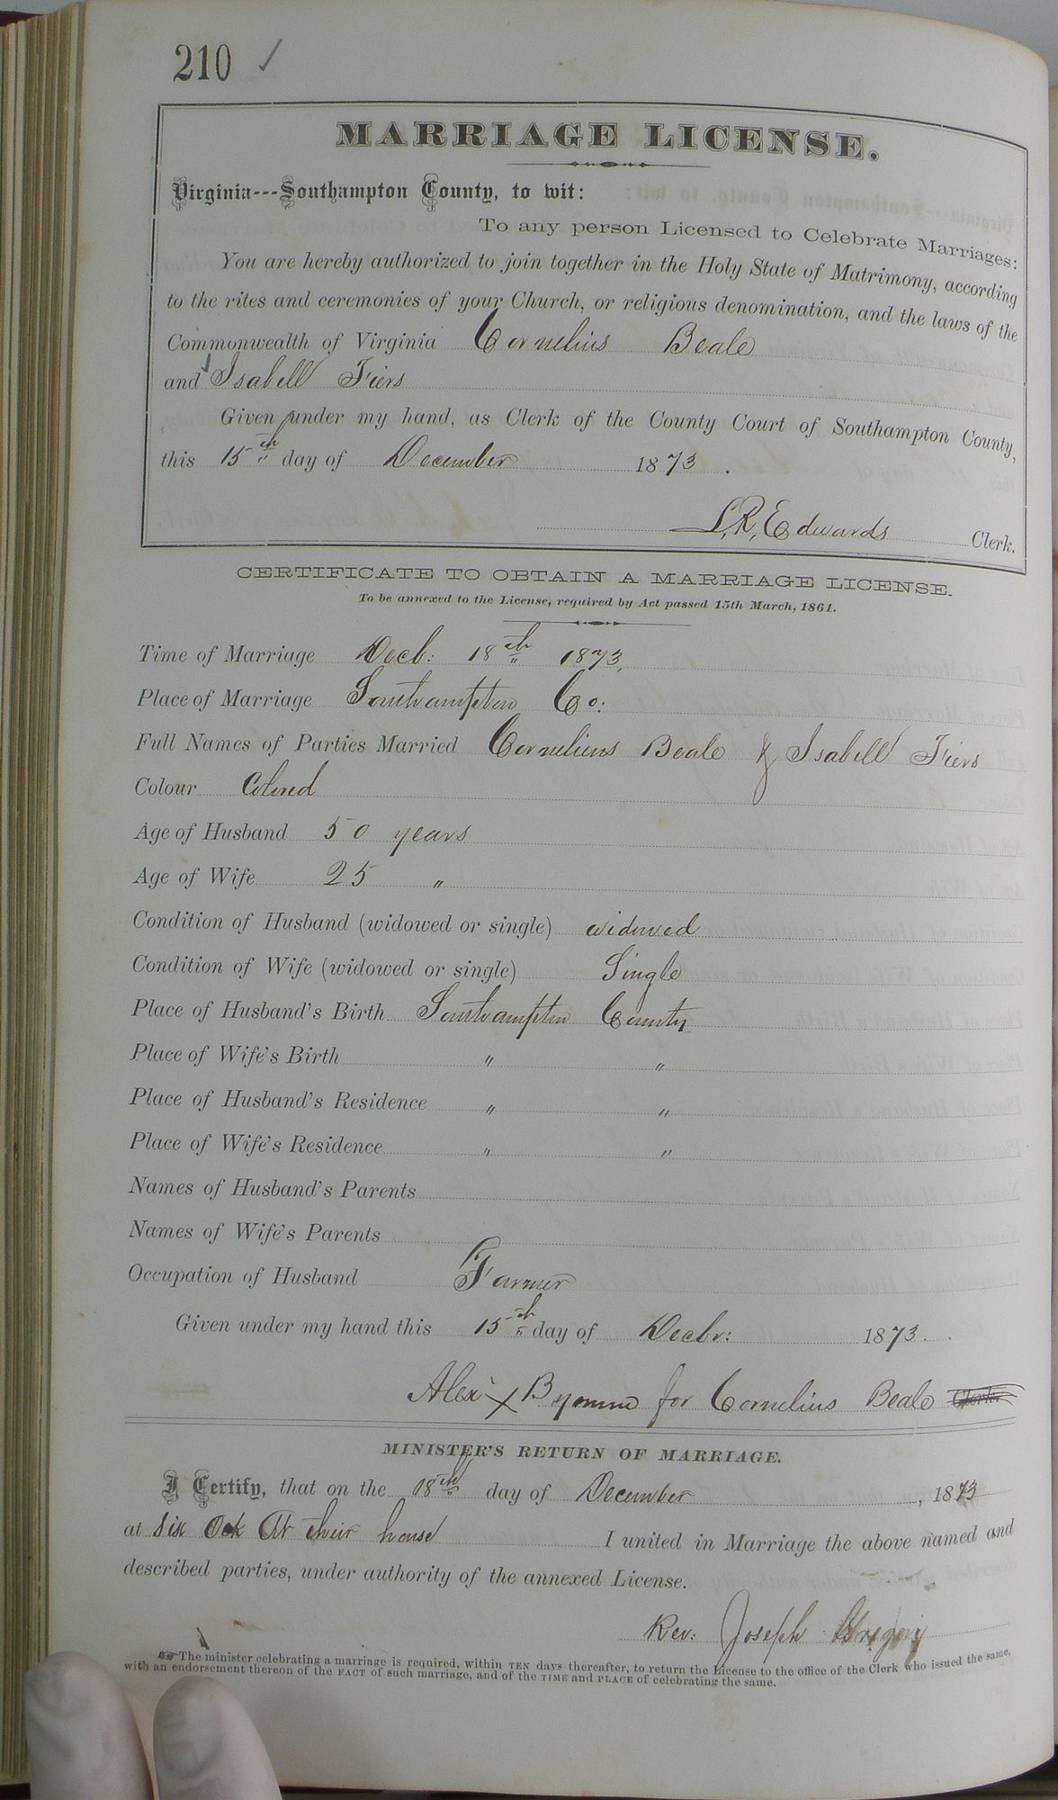 210 ✓
MARRIAGE LICENSE.
Virginia---Southampton County, to wit:
To any person Licensed to Celebrate Marriages:
You are hereby authorized to join together in the Holy State of Matrimony, according
to the rites and ceremonies of your Church, or religious denomination, and the laws of the
Commonwealth of Virginia Cornelius Beale
and Isabell Fiers
Given under my hand, as Clerk of the County Court of Southampton County,
this 15th day of December 1873.
L.R. Edwards Clerk.
CERTIFICATE TO OBTAIN A MARRIAGE LICENSE.
To be annexed to the License, required by Act passed 15th March, 1861.
Time of Marriage Decb: 18th 1873,
Place of Marriage Southampton Co:
Full Names of Parties Married Cornelius Beale & Isabell Fiers
Colour Colored
Age of Husband 50 years
Age of Wife 25 "
Condition of Husband (widowed or single) widowed
Condition of Wife (widowed or single) Single
Place of Husband's Birth Southampton County
Place of Wife's Birth " "
Place of Husband's Residence " "
Place of Wife's Residence " "
Names of Husband's Parents
Names of Wife's Parents
Occupation of Husband Farmer
Given under my hand this 15th day of Decbr: 1873.
Alex X for Cornelius Beale
MINISTER'S RETURN OF MARRIAGE.
I Certify, that on the 18th day of December, 1873
at Six Ock At their house I united in Marriage the above named and
described parties, under authority of the annexed License.
Rev: Joseph Gregory
The minister celebrating a marriage is required, within TEN days thereafter, to return the License to the office of the Clerk who issued the same,
with an endorsement thereon of the FACT of such marriage, and of the TIME and PLACE of celebrating the same.